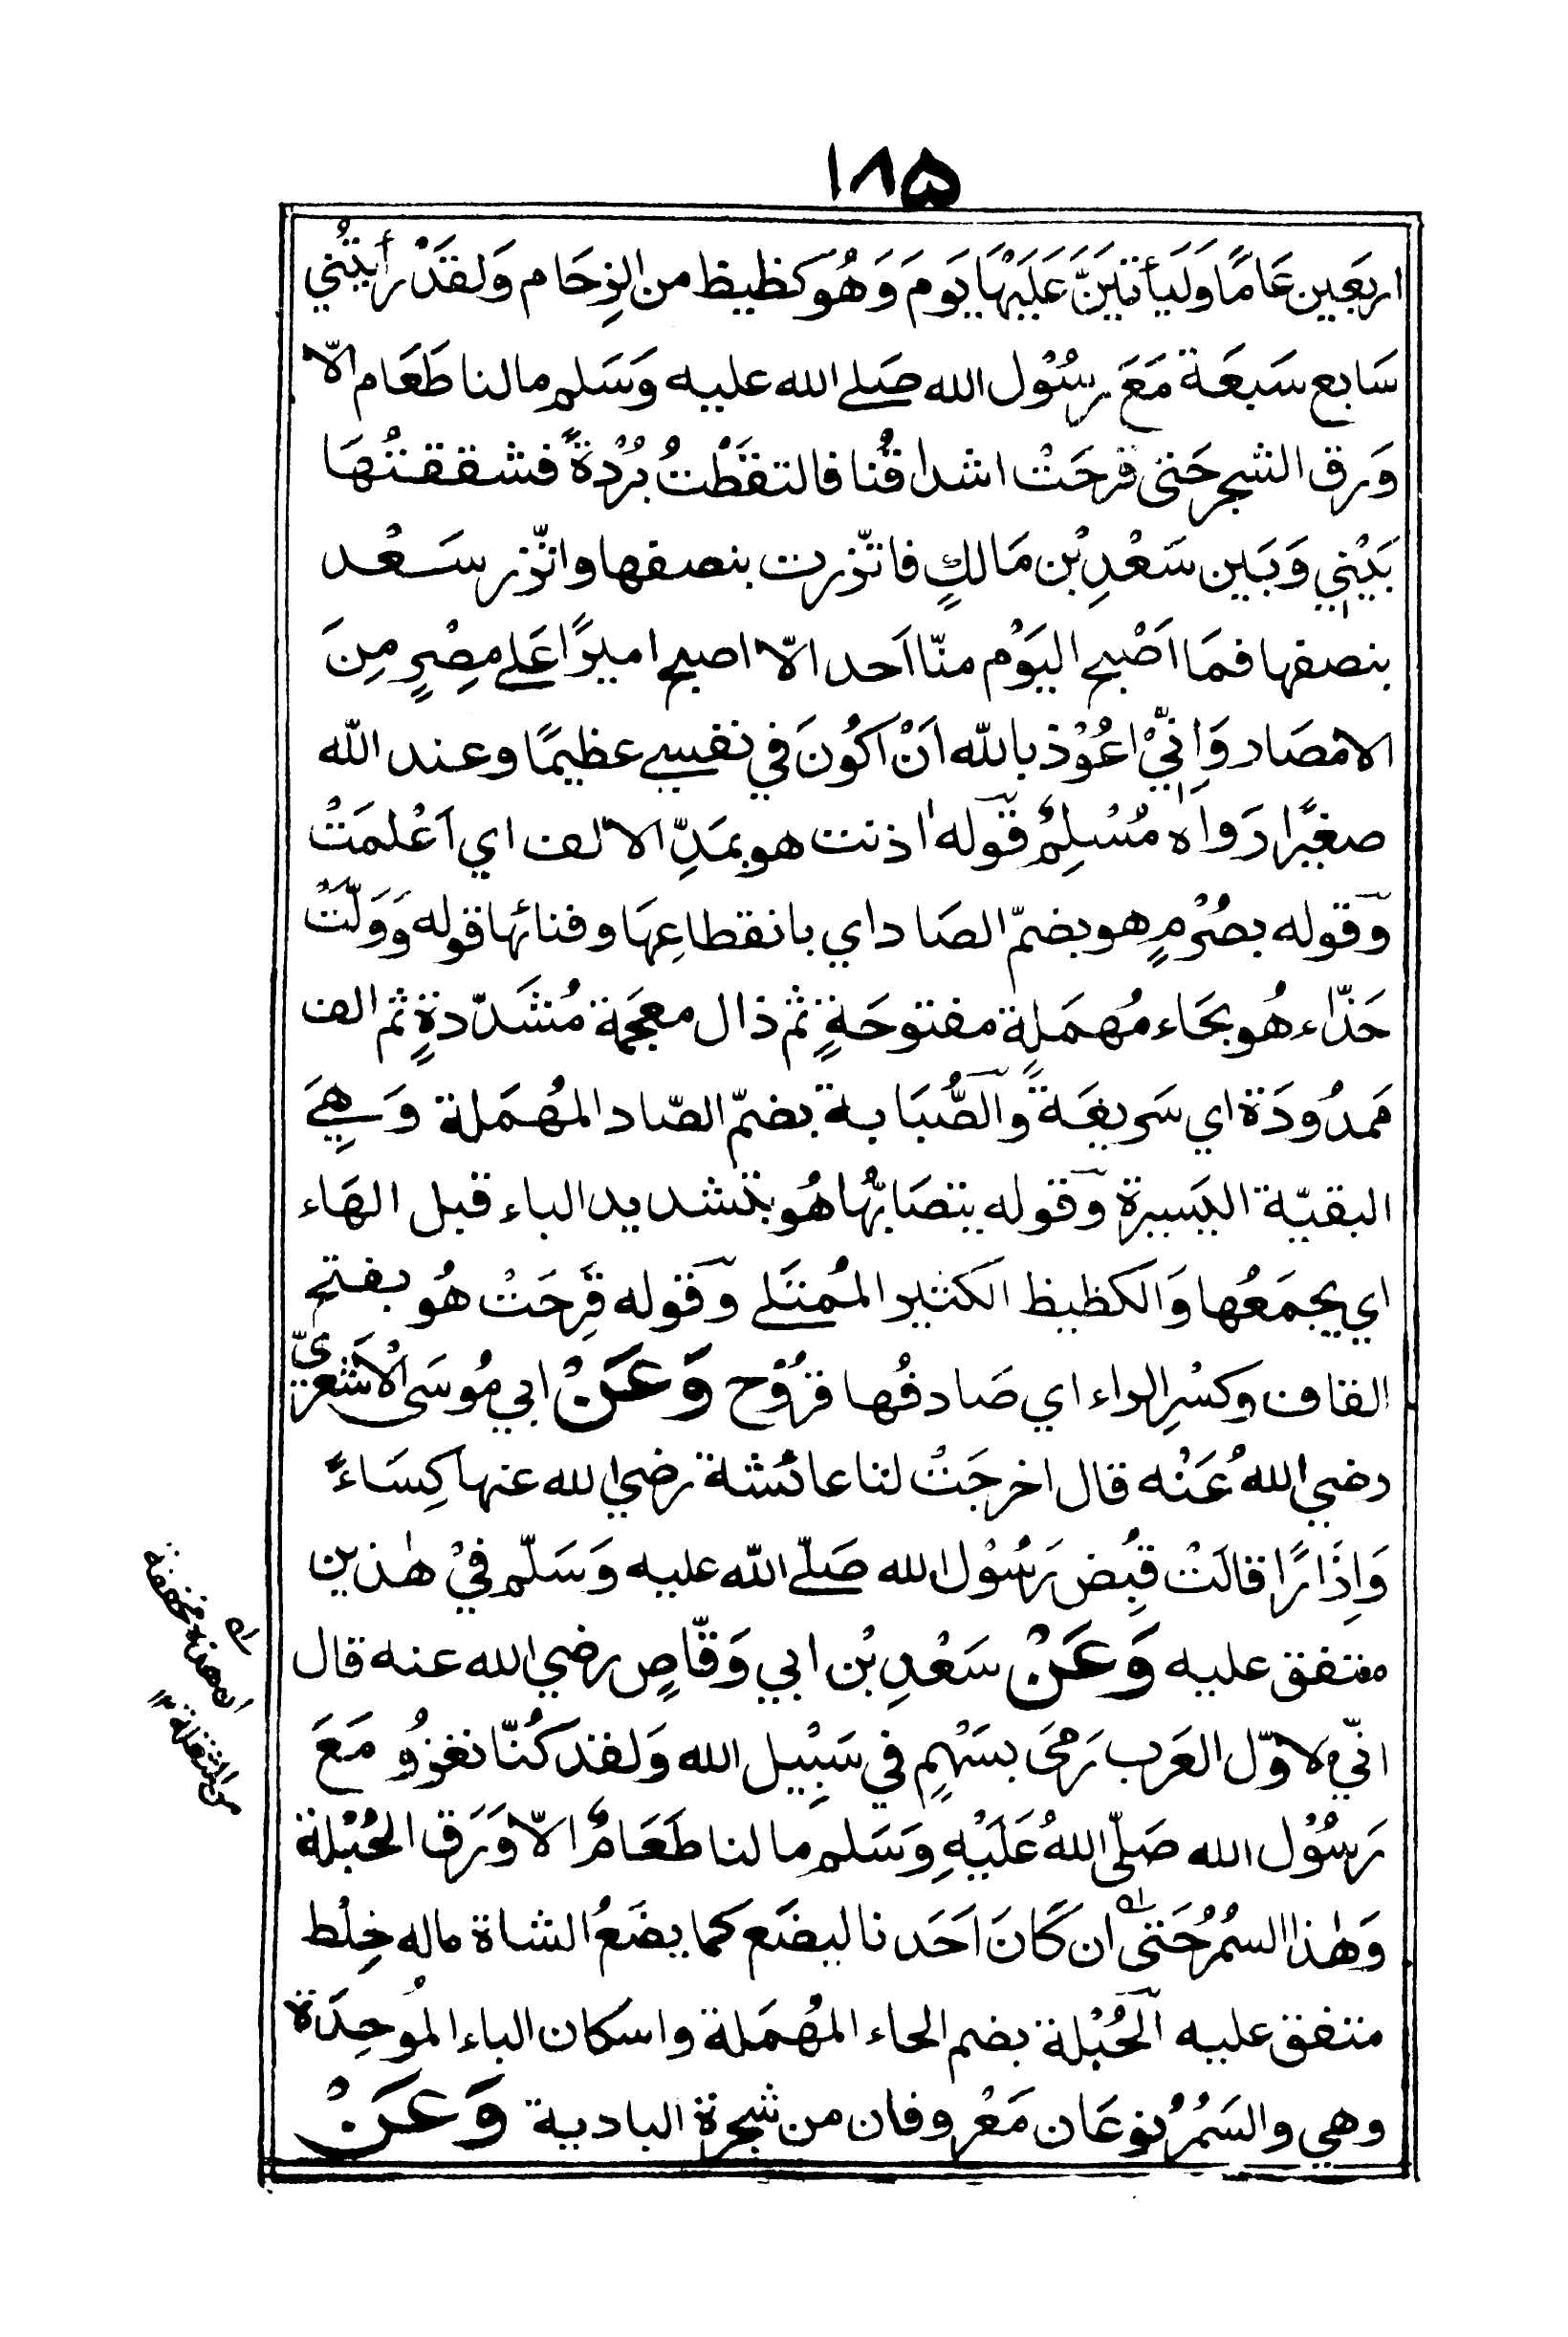 ١٨۵
اربَعين عَامًا وَلَيَأتيَنَّ عَلَيْهَا يَومَ وَهُوَ كظيظ من الزِحَام وَلَقَدْ رأيتُني
سَابع سَبعَة مَعَ رسُوْل الله صَلى الله عليه وَسَلم مالنا طَعَام الّا
وَرق الشجر حَتى قرحَتْ اشداقُنا فالتقَطْتُ بُرْدةً فشققتُهَا
بَيْنِي وَبَين سَعْدِ بْن مَالكٍ فاتّزرت بنصفها واتّزر سَعْد
بنصفها فمَا اَصْبح اليَوْم منّا اَحد الّا اصبح اميرًا عَلى مِصْرٍ مِنَ
الامْصَار وَاِنّيْ اعُوْذ بالله اَنْ اَكُونَ في نفسي عظيمًا وعند الله
صغيرًا رَواه مُسْلِمٌ قَوله اٰذنت هو بمَدِّ الالف اي اَعْلمَتْ
وَقوله بصُرْمٍ هو بضمّ الصَاد اي بانقطاعِهَا وفنائها قوله وَوَلّتْ
حَذّاء هُو بحَاء مُهمَلةٍ مفتوحَةٍ ثم ذال معجمَة مُشَدّدةٍ ثم الف
مَمدُودَة اي سَريعَةً وَالصُّبَابة بضمّ الصّاد المهُمَلة وَهِيَ
البقيّة اليَسيرة وَقوله يتصَابّهَا هُو بتشديد الباء قبل الهَاء
اي يجمَعُها وَالكظيظ الكثير المُمتَلى وَقوله قَرِحَتْ هُو بفتح
القاف وكسْرِ الراء اي صَار فيُها قرُوْح وَعَنْ ابي مُوسَى الْاَشعَريّ
رضي اللهُ عَنْه قال اخرجَتْ لنا عائشة رضي الله عنها كِسَاءً
وَاِذَارًا قالَتْ قبُِض رَسُوْل الله صَلّى الله عليه وَسَلّم فيْ هٰذين
متفق عليه وَعَنْ سَعْدِ بْن ابي وَقّاصٍ رضي الله عنه قال
انّي لاوّل العَرب رَمىَ بسَهْمٍ في سَبِيْل الله وَلقد كُنّا نغزوُ مَعَ
رَسُوْل الله صَلّى اللهُ عَلَيْهِ وَسَلم مالنا طَعَامٌ الّا وَرَق الحُبْلة
وَهٰذا السمُرُ حَتى ان كَانَ اَحَدنا ليضَع كما يضَعُ الشاة ماله خِلْط
متفق عليه اَلحُبْلة بضم الحاء المهُمَلة واسكان الباء المُوحِدَة
وهي والسَمُرُ نوعَان مَعْروفان من شجرة البادية وَعَنْ
مخففة
من المثقلة